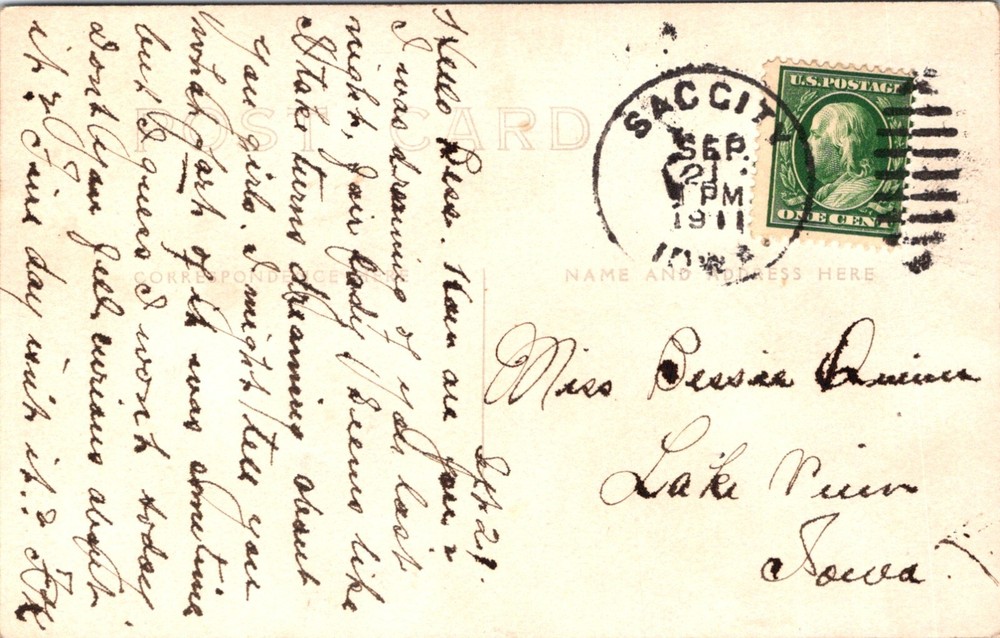 POST CARD
CORRESPONDENCE HERE
NAME AND ADDRESS HERE
U.S. POSTAGE
ONE CENT
SAC CITY
SEP
21
PM
1911
IOWA
Sept 21.
Hello Bess. How are you?
I was dreaming of you last
night, Fair Lady. Seems like
I take turns dreaming about
you girls. I might tell you
what part of it was sometime
but I guess I wont today
Dont you feel curious about
it??? Fine day isn't it?
Miss Bessie
Lake View
Iowa.